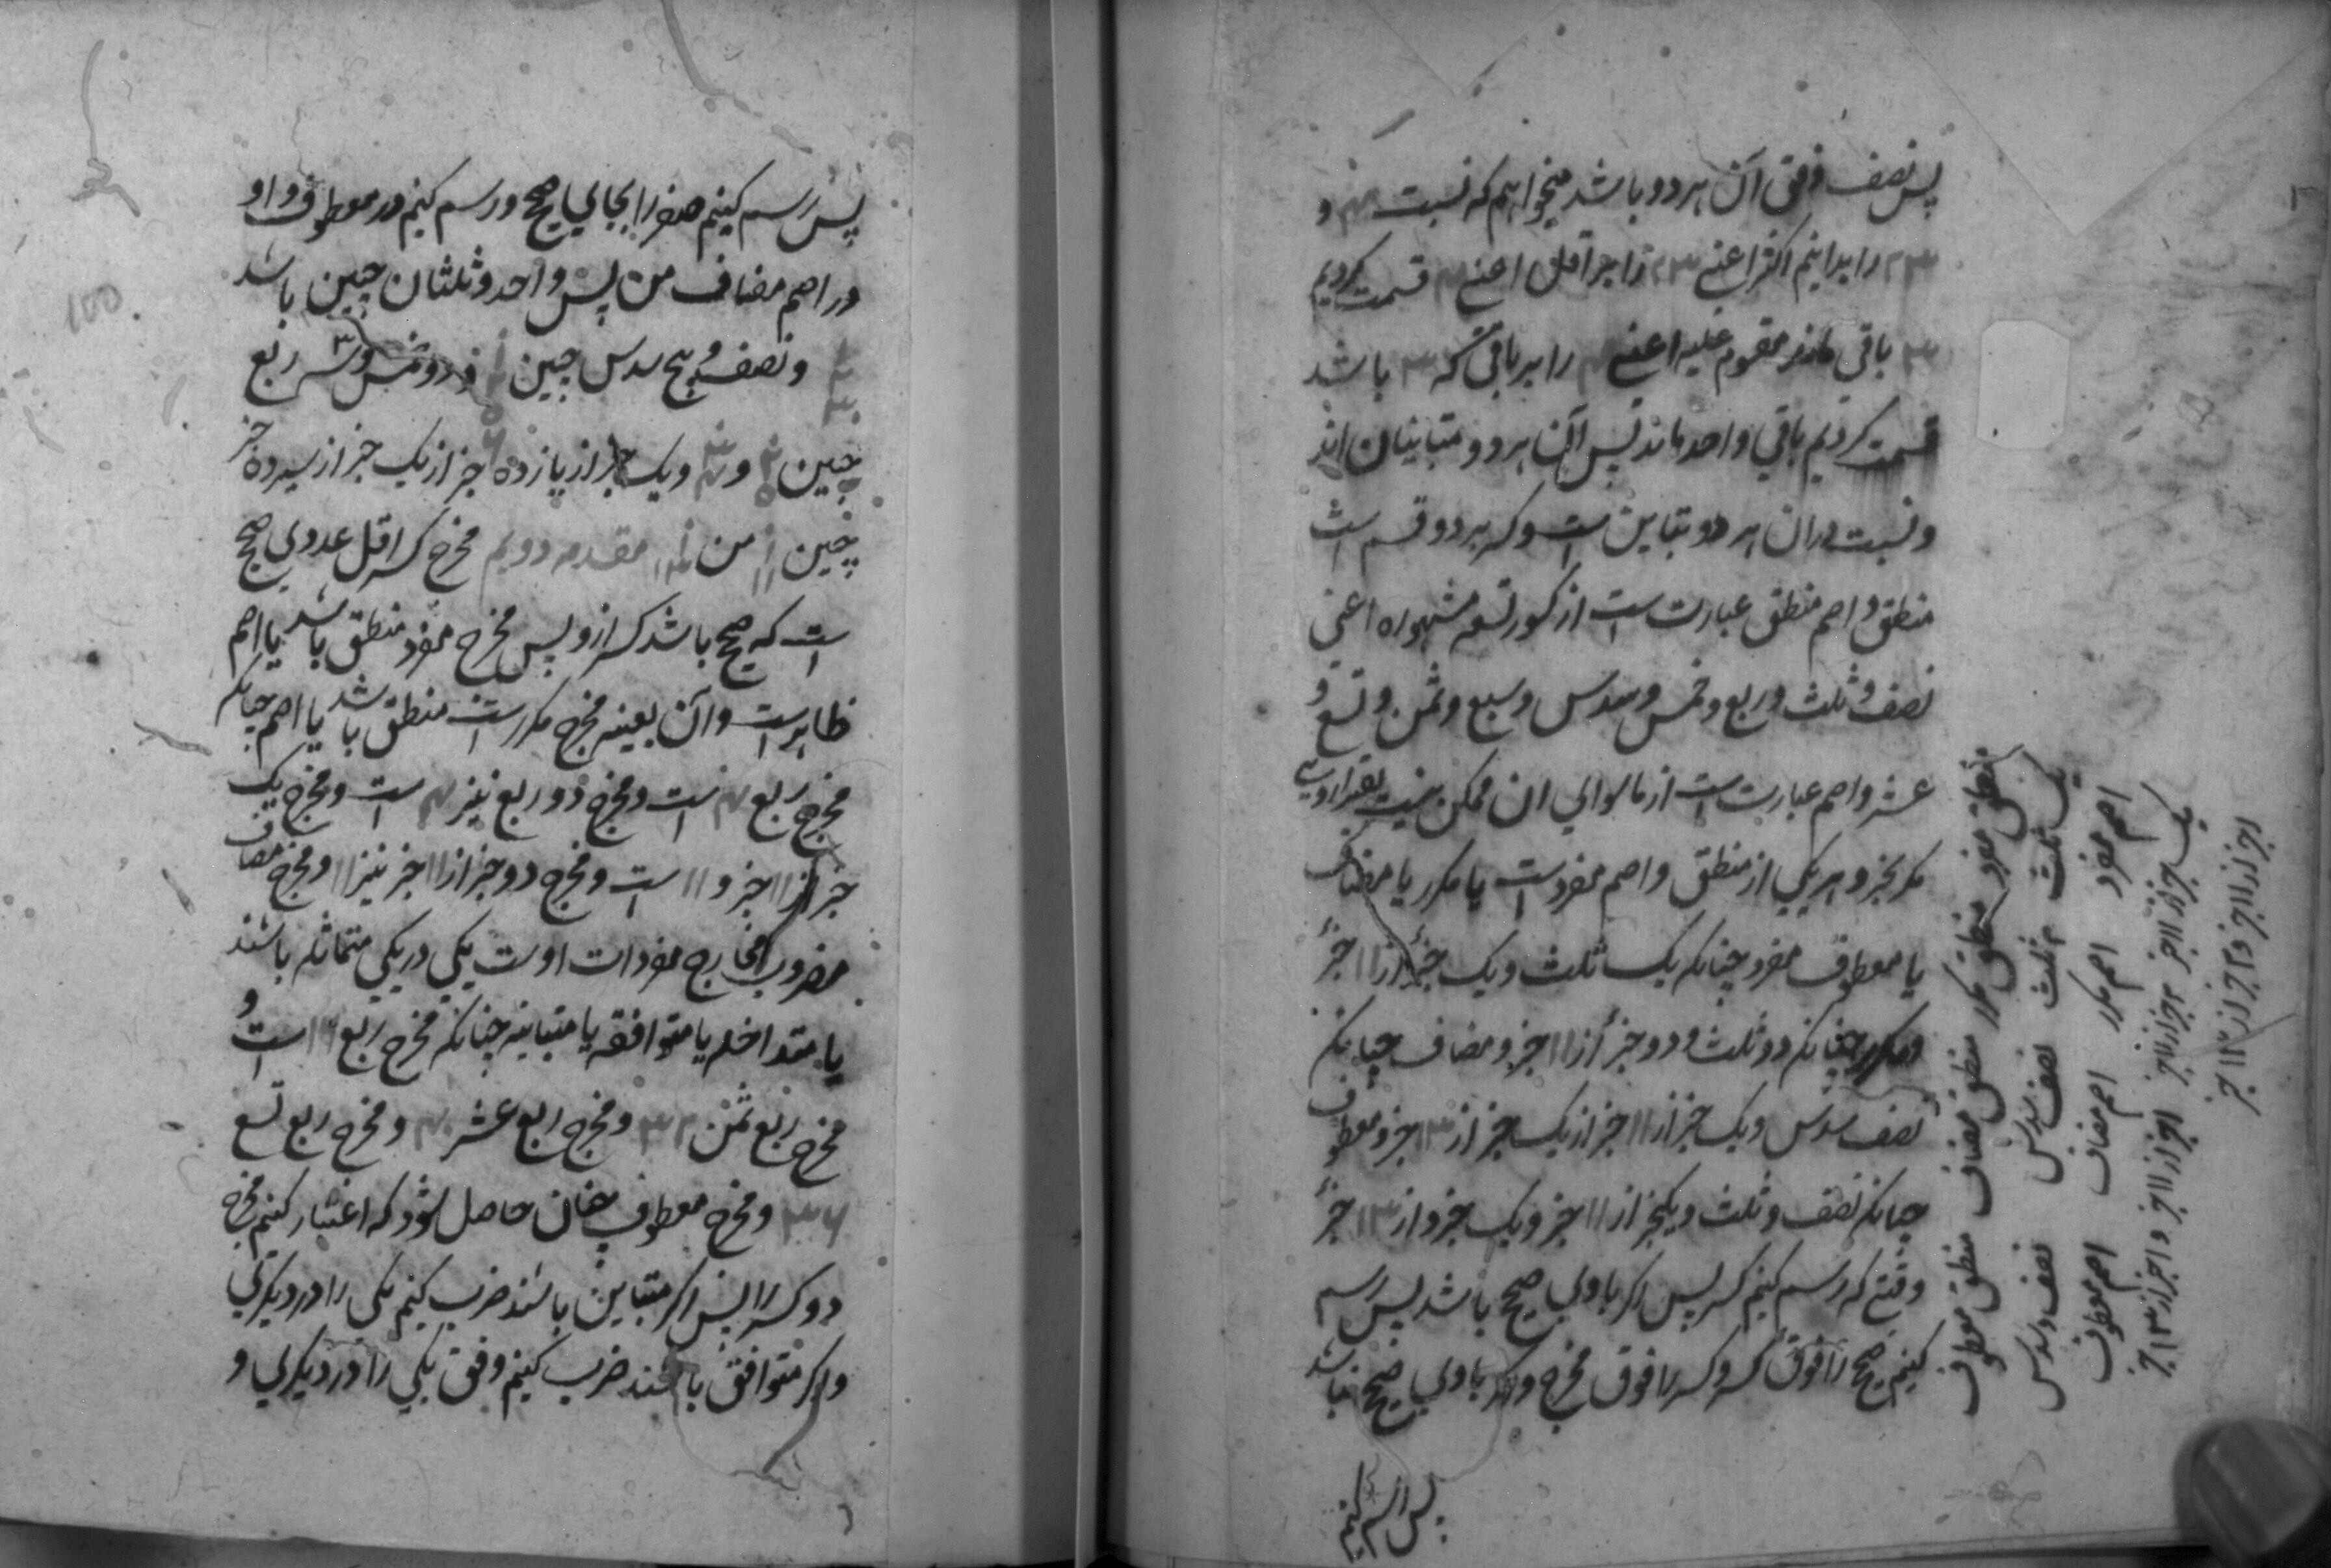 پس نصف وفق آن هر دو باشد میخواهم که نسبت ۴ و
۲۳ را بدانیم اکثر اعنے ۲۳ را بر اقل اعنے ۴ قسمت کردیم
۳ باقی ماند مقسوم علیه اعنے ۴ را بر باقی که ۳ باشد
قسمت کردیم باقی واحد ماند پس آن هر دو متباینان اند
و نسبت دران هر دو تباین است و کسر بر دو قسم است
منطق و اصم منطق عبارت است از کسور تسعه مشهوره اعنی
نصف و ثلث و ربع و خمس و سدس و سبع و ثمن و تسع و
عشر و اصم عبارت است از ماسوای ان ممکن نیست تعبیر ازو
مکر بجز و هر یکی از منطق و اصم مفرد است یا مکرر یا مضاف
یا معطوف مفرد چنانکه یک ثلث و یک جزء از ۱۱ جزء
و مکرر چنانکه دو ثلث و دو جزء از ۱۱ جزو مضاف چنانکه
نصف سدس و یک جز از ۱۱ جز از یک جز از ۱۳ جز و معطوف
چنانکه نصف و ثلث و یکجز از ۱۱ جز و یک جزو از ۱۳ جزء
وقتے که رسم کنیم کسر پس اکر با وی صحیح باشد پس رسم
کنیم صحیح را فوق کسر و کسر را فوق مخرج و اکر با وی صحیح نباشد
پس رسم کنیم
منطق مفرد منطق مکرر منطق مضاف منطق معطوف
یک ثلث ۲ ثلث نصف سدس نصف و سدس
اصم مفرد اصم مکرر اصم مضاف اصم معطوف
یک جز از ۱۱ جز ۲ جز از ۱۱ ج ا جز از ۱۱ جز و ا جز از ۱۳ ج
ا جز از ۱۱ جز و ا جز از ۱۳ ج
پس رسم کنیم صفر را بجای صحیح و رسم کنیم در معطوف واو
در اصم مضاف من پس واحد و ثلثان چنین باشد
و نصف پنج سدس چنین و دو خمس و سه ربع
چنین و و یک جز از یازده جز از یک جز از سیزده جز
چنین من مقدمه دویم مخرج کسر اقل عددی صحیح
است که صحیح باشد کسر ازو پس مخرج مفرد منطق باشد یا اصم
ظاهر است و آن بعینه مخرج مکرر است منطق باشد یا اصم چنانکه
مخرج ربع ۴ است و مخرج دو ربع نیز ۴ است و مخرج یک
جز از ۱۱ جز و ۱۱ است و مخرج دو جز از ۱۱ جز نیز ۱۱ و مخرج مضاف
مضروب مخارج مفردات اوست یکی در یکی متماثله باشند
یا متداخله یا متوافقه یا متباینه چنانکه مخرج ربع است و
مخرج ربع ثمن ۳۲ و مخرج ربع عشر ۴۰ و مخرج ربع تسع
۳۶ و مخرج معطوف چنان حاصل شود که اعتبار کنیم مخرج
دو کسر را پس اکر متباین باشند ضرب کنیم یکی را در دیکری
و اکر متوافق باشند ضرب کنیم وفق یکی را در دیکری و